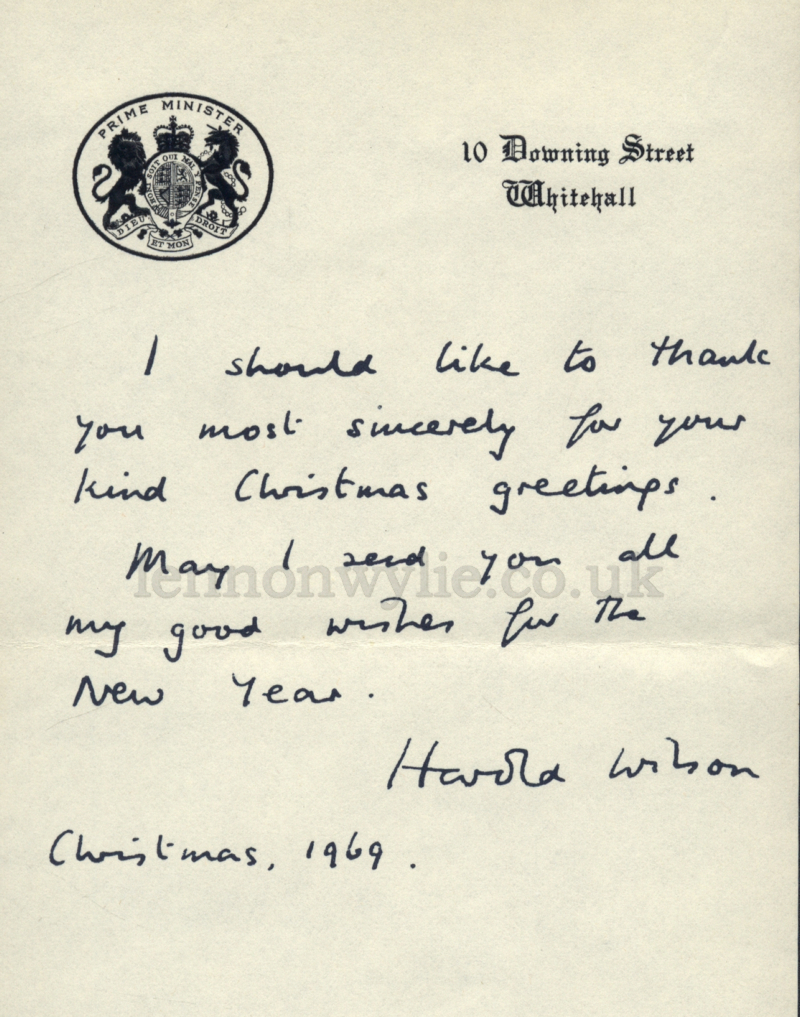 PRIME MINISTER
HONI SOIT QUI MAL Y PENSE
DIEU ET MON DROIT
10 Downing Street
Whitehall
I should like to thank
you most sincerely for your
kind Christmas greetings.
May I send you all
lennonwylie.co.uk
my good wishes for the
New Year.
Harold Wilson
Christmas, 1969.